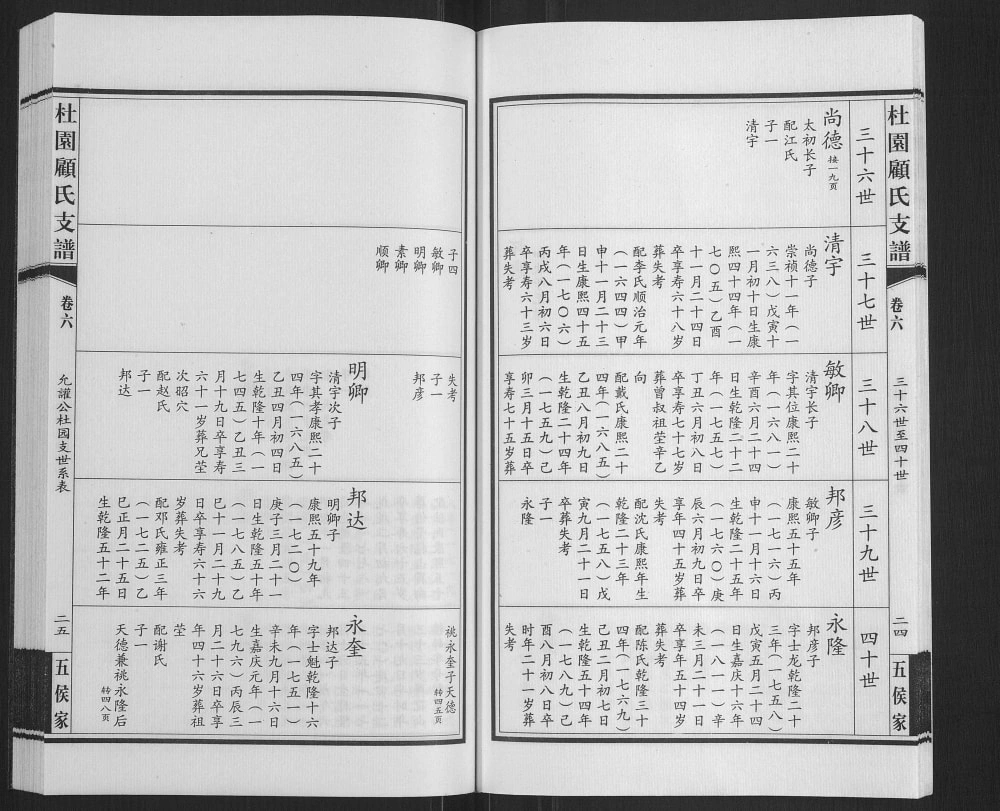 杜園顧氏支譜
卷六
三十六世至四十世
二四
五侯家
三十六世
尚德 接一九页
太初长子
配江氏
子一
清宇
三十七世
清宇
尚德子
崇祯十一年（一
六三八）戊寅十
一月初十日生康
熙四十四年（一
七〇五）乙酉
十一月二十四日
卒享寿六十八岁
葬失考
配李氏顺治元年
（一六四四）甲
申十一月二十三
日生康熙四十五
年（一七〇六）
丙戌八月初六日
卒享寿六十三岁
葬失考
三十八世
敏卿
清宇长子
字其位康熙二十
年（一六八一）
辛酉六月二十四
日生乾隆二十二
年（一七五七）
丁丑六月初八日
卒享寿七十七岁
葬曾叔祖茔辛乙
向
配戴氏康熙二十
四年（一六八五）
乙丑八月初九日
生乾隆二十四年
（一七五九）己
卯三月十五日卒
享寿七十五岁葬
三十九世
邦彦
敏卿子
康熙五十五年
（一七一六）丙
申十一月十六日
生乾隆二十五年
（一七六〇）庚
辰六月初九日卒
享年四十五岁葬
失考
配沈氏康熙年生
乾隆二十三年
（一七五八）戊
寅九月二十一日
卒葬失考
子一
永隆
四十世
永隆
邦彦子
字士龙乾隆二十
三年（一七五八）
戊寅五月二十四
日生嘉庆十六年
（一八一一）辛
未三月二十一日
卒享年五十四岁
葬失考
配陈氏乾隆三十
四年（一七六九）
己丑二月初七日
生乾隆五十四年
（一七八九）己
酉八月初八日卒
时年二十一岁葬
失考
子四
敏卿
明卿
素卿
顺卿
失考
子一
邦彦
明卿
清宇次子
字其孝康熙二十
四年（一六八五）
乙丑四月初四日
生乾隆十年（一
七四五）乙丑三
月十九日卒享寿
六十一岁葬兄茔
次昭穴
配赵氏
子一
邦达
邦达
明卿子
康熙五十九年
（一七二〇）
庚子三月二十一
日生乾隆五十年
（一七八五）乙
巳十一月二十九
日卒享寿六十六
岁葬失考
配邓氏雍正三年
（一七二五）乙
巳正月二十五日
生乾隆五十二年
桃永奎子天德
转四五页
永奎
邦达子
字士魁乾隆十六
年（一七五一）
辛未九月十六日
生嘉庆元年（一
七九六）丙辰三
月二十六日卒享
年四十六岁葬祖
茔
配谢氏
子一
天德兼祧永隆后
转四八页
杜園顧氏支譜
卷六
允讙公杜园支世系表
二五
五侯家